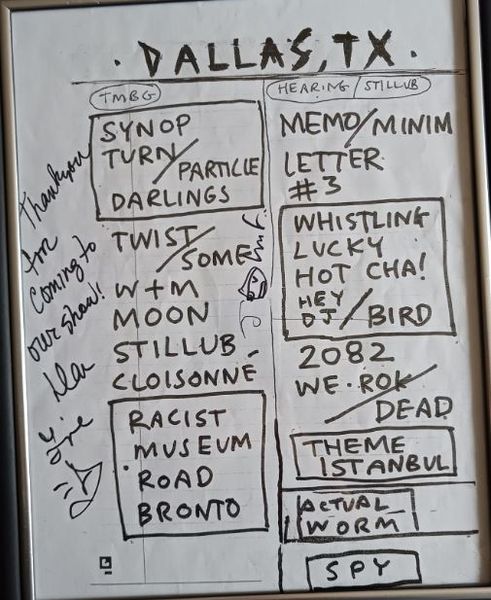 · DALLAS, TX ·
TMBG
SYNOP
TURN/PARTICLE
DARLINGS
TWIST/SOME
W+M
MOON
STILLUB
CLOISONNÉ
RACIST
MUSEUM
ROAD
BRONTO
HEARING/STILLUB
MEMO/MINIM
LETTER
#3
WHISTLING
LUCKY
HOT CHA!
HEY
DJ/BIRD
2082
WE·ROK/DEAD
THEME
ISTANBUL
ACTUAL
WORM
SPY
Thankyou
for
Coming to
our show!